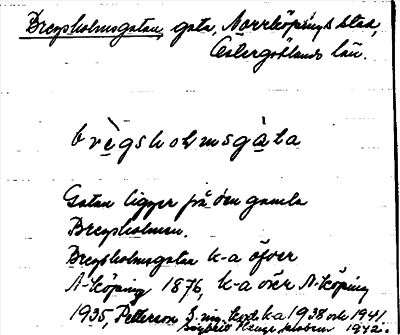 Bregsholmsgatan, gata, Norrköpings stad,
Östergötlands län.
brègsholmsgàta
Gatan ligger på den gamla
Bregsholmen.
Bregsholmsgatan k-a över
N-köping 1876, k-a över N-köping
1935, Petterson k-a 1938 och 1941
1942.